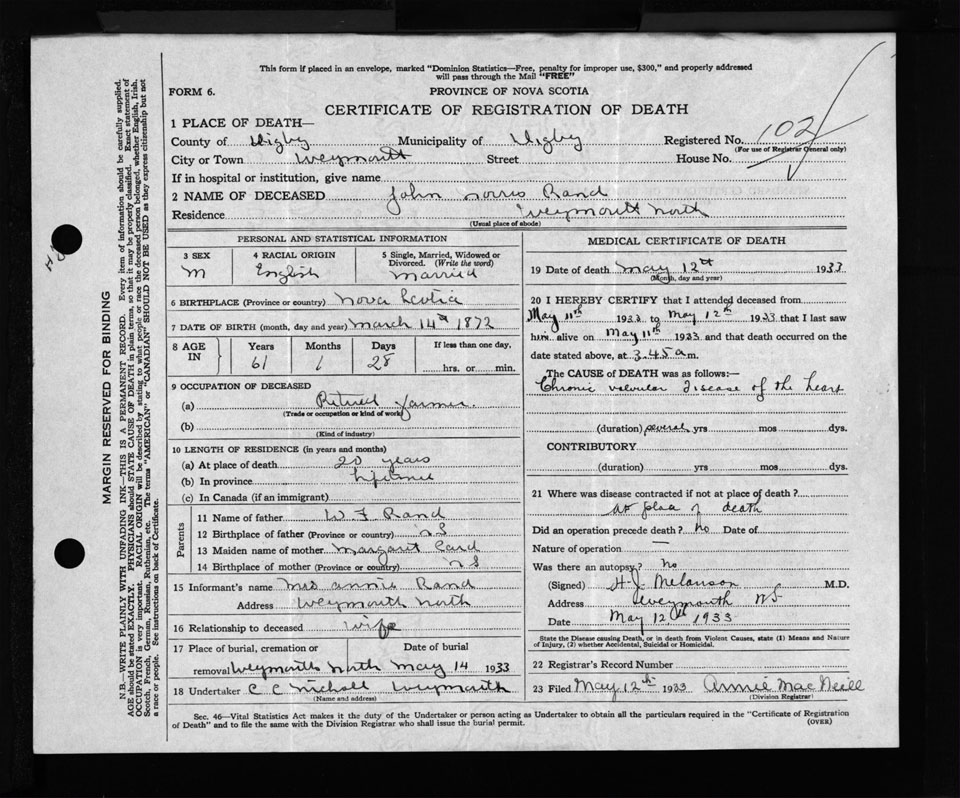 This form if placed in an envelope, marked "Dominion Statistics—Free, penalty for improper use, $300," and properly addressed
will pass through the Mail "FREE"
FORM 6.
PROVINCE OF NOVA SCOTIA
CERTIFICATE OF REGISTRATION OF DEATH
1 PLACE OF DEATH—
County of Digby Municipality of Digby Registered No. 102
(For use of Registrar General only)
City or Town Weymouth Street House No.
If in hospital or institution, give name
2 NAME OF DECEASED John Norris Rand
Residence Weymouth North
(Usual place of abode)
PERSONAL AND STATISTICAL INFORMATION
3 SEX 4 RACIAL ORIGIN 5 Single, Married, Widowed or
Divorced. (Write the word)
M English Married
6 BIRTHPLACE (Province or country) Nova Scotia
7 DATE OF BIRTH (month, day and year) March 14th 1872
8 AGE IN Years Months Days If less than one day,
61 1 28 hrs. or min.
9 OCCUPATION OF DECEASED
(a) Retired farmer
(Trade or occupation or kind of work)
(b)
(Kind of industry)
10 LENGTH OF RESIDENCE (in years and months)
(a) At place of death 20 years
(b) In province Lifetime
(c) In Canada (if an immigrant)
Parents
11 Name of father W J Rand
12 Birthplace of father (Province or country) N S
13 Maiden name of mother Margaret Card
14 Birthplace of mother (Province or country) N S
15 Informant's name Mrs Annie Rand
Address Weymouth North
16 Relationship to deceased Wife
17 Place of burial, cremation or Date of burial
removal Weymouth North May 14 1933
18 Undertaker C C Nichols Weymouth
(Name and address)
MEDICAL CERTIFICATE OF DEATH
19 Date of death May 12th 1933
(Month, day and year)
20 I HEREBY CERTIFY that I attended deceased from
May 11th 1933 to May 12th 1933 that I last saw
him alive on May 11th 1933 and that death occurred on the
date stated above, at 3.45 a m.
The CAUSE of DEATH was as follows:—
Chronic valvular disease of the heart
(duration) several yrs mos dys.
CONTRIBUTORY
(duration) yrs mos dys.
21 Where was disease contracted if not at place of death?
at place of death
Did an operation precede death? No Date of
Nature of operation —
Was there an autopsy? No
(Signed) H J Melanson M.D.
Address Weymouth NS
Date May 12th 1933
State the Disease causing Death, or in death from Violent Causes, state (1) Means and Nature
of Injury, (2) whether Accidental, Suicidal or Homicidal.
22 Registrar's Record Number
23 Filed May 12th 1933 Annie MacNeill
(Division Registrar)
Sec. 46—Vital Statistics Act makes it the duty of the Undertaker or person acting as Undertaker to obtain all the particulars required in the "Certificate of Registration
of Death" and to file the same with the Division Registrar who shall issue the burial permit. (OVER)
MARGIN RESERVED FOR BINDING
N.B.—WRITE PLAINLY WITH UNFADING INK—THIS IS A PERMANENT RECORD. Every item of information should be carefully supplied.
AGE should be stated EXACTLY. PHYSICIANS should STATE CAUSE OF DEATH in plain terms, so that it may be properly classified. Exact statement of
OCCUPATION is very important. RACIAL ORIGIN will be described by stating to what people or race the deceased person belonged, whether English, Irish,
Scotch, French, German, Russian, Ruthenian, etc. The terms "AMERICAN" or "CANADIAN" SHOULD NOT BE USED as they express citizenship but not
a race or people. See instructions on back of Certificate.